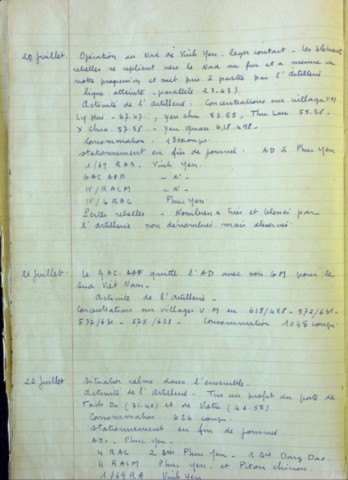 20 juillet. Opération au Nord de Vinh Yen. leger contact - les éléments
rebelles se replient vers le Nord au fur et a mesure de
notre progression et sont pris à partie par l'artillerie
ligne atteinte - parallèle 23.63).
Activité de l'artillerie: Concentrations sur villages V.M
Ly Hai - 47.47, yen chu 53.53, Thu Lam 53.58.
X Chua. 57.58 - yen quan 618.498.
Consommation: coups.
stationnement en fin de journée: AD à Phuc Yen
1/69 RAA. Vinh Yen.
GAC AOF - d° -
IV/RALCM - d° -
IV/4 RAC Phuc Yen.
Pertes rebelles - Nombreux tués et blessés par
l'artillerie non dénombrés mais observés.
21 juillet. Le GAC. AOF quitte l'AD avec son GM pour le
Sud Viet Nam.
Activité de l'artillerie.
Concentrations sur villages V.M en 618/498 - 572/631-
572/630 - 575/628. Consommation 1048 coups.
22 juillet. Situation calme dans l'ensemble.
Activité de l'artillerie. Tirs au profit du poste de
(31.40) et de Vietri (46.55)
Consommation 624 coups
stationnement en fin de journée
AD. - Phuc Yen. -
4 RAC 2 Btries Phuc Yen. - 1 Bie Dong Dau.
4 RALCM Phuc Yen et Piton chinois.
1/69 RA Vinh Yen